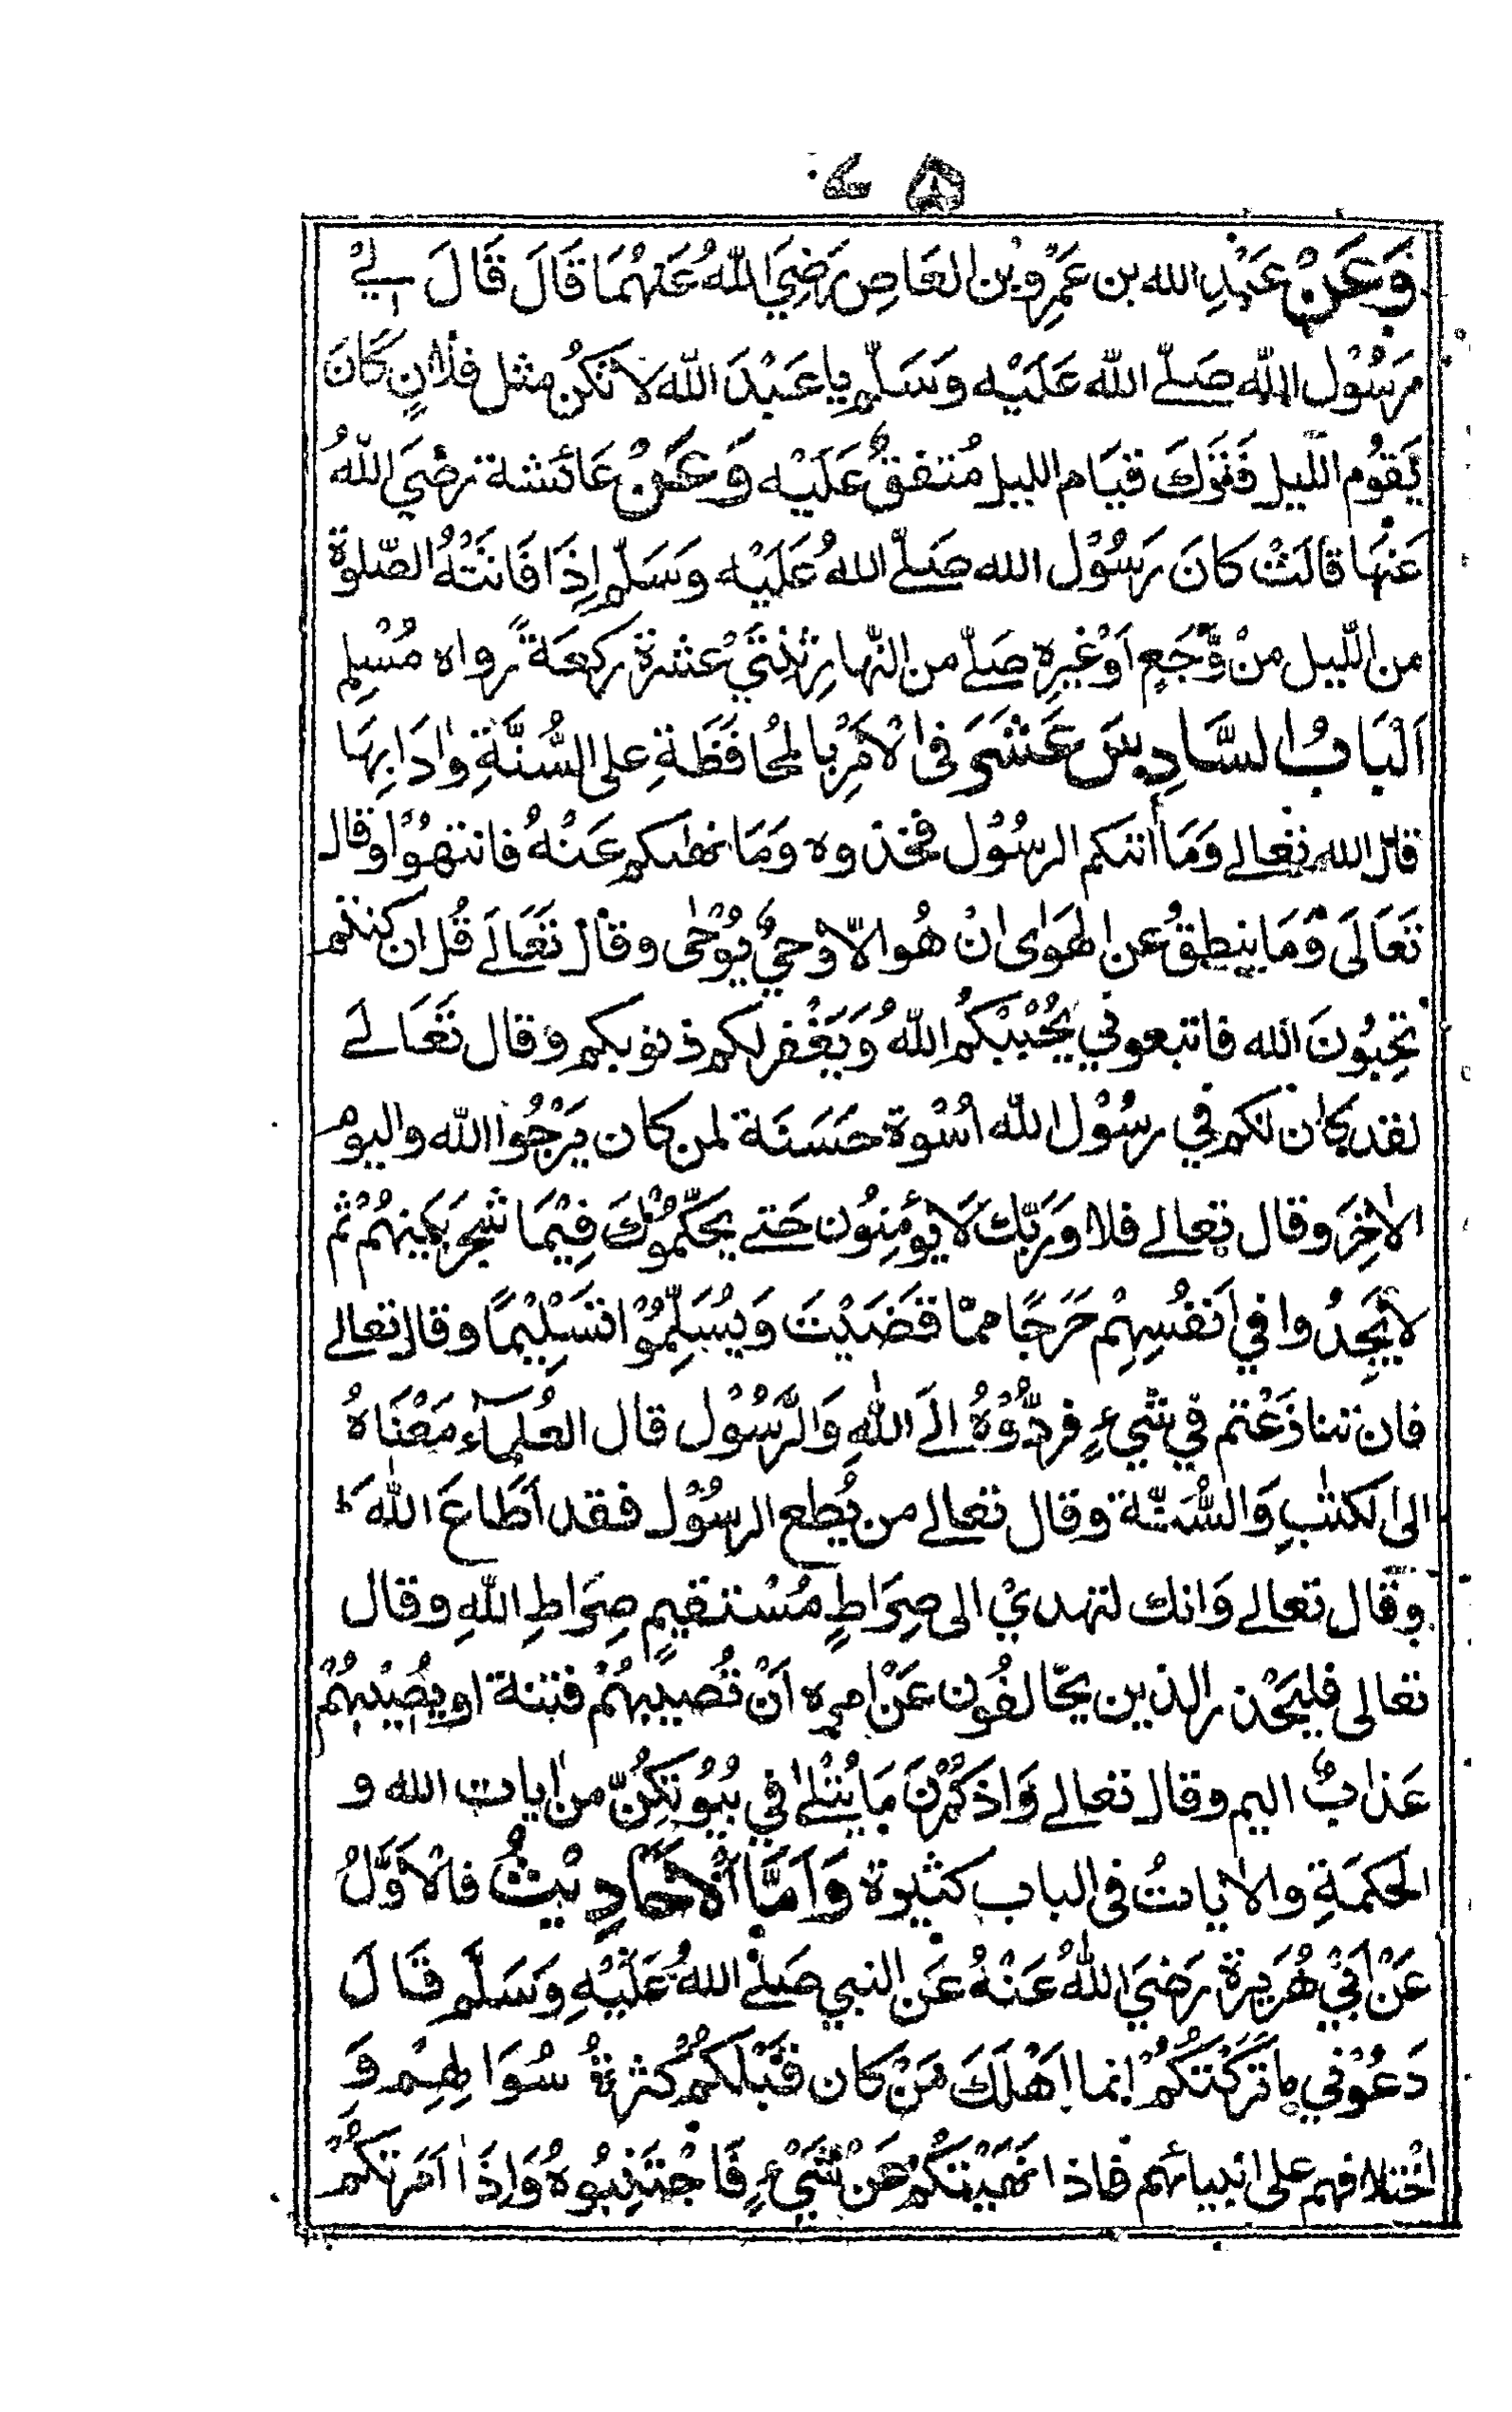 وَعَنْ عَبْدِ الله بن عَمْرِو بْن العَاصِ رَضِيَ اللّٰهُ عَنْهُمَا قَالَ قَالَ لِيْ
رَسُوْل الله صَلّے الله عَلَيْه وَسَلّم يا عَبْدَ اللّٰه لا تَكُنْ مثل فلانٍ كَانَ
يَقُوْم اللّيل فَتَرَكَ قيَام الليل مُتفقٌ عَلَيْه وَعَنْ عَائشة رضْيَ اللّٰهُ
عَنْهَا قالَتْ كانَ رَسُوْل الله صَلّے اللهُ عَلَيْه وَسَلّم اِذَا فَاتَتْهُ الصّلوة
من اللّيل منْ وَّجَعٍ اَوْ غَيْرِه صَلّے من النّهارِ ثِنْتَيْ عشرة ركعَةً رواه مُسْلِم
اَلْبَابُ السَّادِسَ عَشَرَ فى الْاَمْرِ بالْمُحَافَظَةِ على السُّنَّةِ وَاٰدَابِهَا
قال الله تعالے وَمَا اٰتٰىكم الرسُوْل فخذوه وَمَا نهٰىكم عَنْهُ فانتهُوْا وقال
تَعَالَى وَمَا ينطِقُ عن الهَوٰى انْ هُو الّا وَحْيٌ يُوْحٰى وقال تَعَالَے قُل ان كنتم
تُحِبّوْنَ الله فاتبعونيْ يُحْبِبْكُمُ اللّٰهُ وَيَغْفر لكم ذنوبكم وقال تَعَالےَ
لقد كان لكم في رسُوْل اللّٰه اُسْوة حَسَنَة لمن كان يَرْجُوْا الله واليوم
الاٰخِرَ وقال تعالے فلا وَرَبّكَ لَا يُوْمِنُون حَتے يحَكّمُوْكَ فِيْمَا شجَرَ بَيْنهُمْ ثم
لا يَجِدُوا في اَنفُسِهِمْ حَرَجًا ممّا قَضَيْتَ وَيُسَلِّمُوْا تَسْلِيْمًا وقال تعالے
فان تنازعْتم في شَيءٍ فردُّوْهُ الےَ اللّٰهِ وَالرَّسُوْل قال العُلمآء مَعْنَاهُ
الى الكتٰبِ وَالسُّنّة وقال تعالے من يُطع الرسُوْل فقد اَطَاعَ اللّٰهَ ط
وقال تعالے وَانك لتهديْ الى صِرَاطٍ مُسْتقيم صِرَاطِ اللّٰهِ وقال
تعالى فليَحْذر الذين يخالفُون عَنْ امره اَنْ تُصيبهُمْ فتنة او يُصيْبهُمْ
عَذابٌ اليم وقال تعالے وَاذكُرْنَ مَا يُتْلٰے في بُيُوْتكنّ من اٰيات الله و
الحكمَةِ والاٰياتُ فى الباب كثيرة وَاَمَّا الْاَحَادِيْثُ فالْاَوَّلُ
عَنْ اَبيْ هُرَيرة رَضيَ اللّٰهُ عَنْهُ عَن النبي صَلےْ اللهُ عَلَيْهِ وَسَلَّم قَالَ
دَعُوْني ما تَرَكْتُكُمْ انما اَهْلَكَ مَنْ كان قَبْلَكُمْ كثرةُ سُوَالِهِمْ وَ
اخْتلافهم على انبيائهم فاذا نَهَيْتكُمْ عَنْ شَيْءٍ فَاجْتَنِبُوهُ وَاِذَا اَمَرتكُمْ